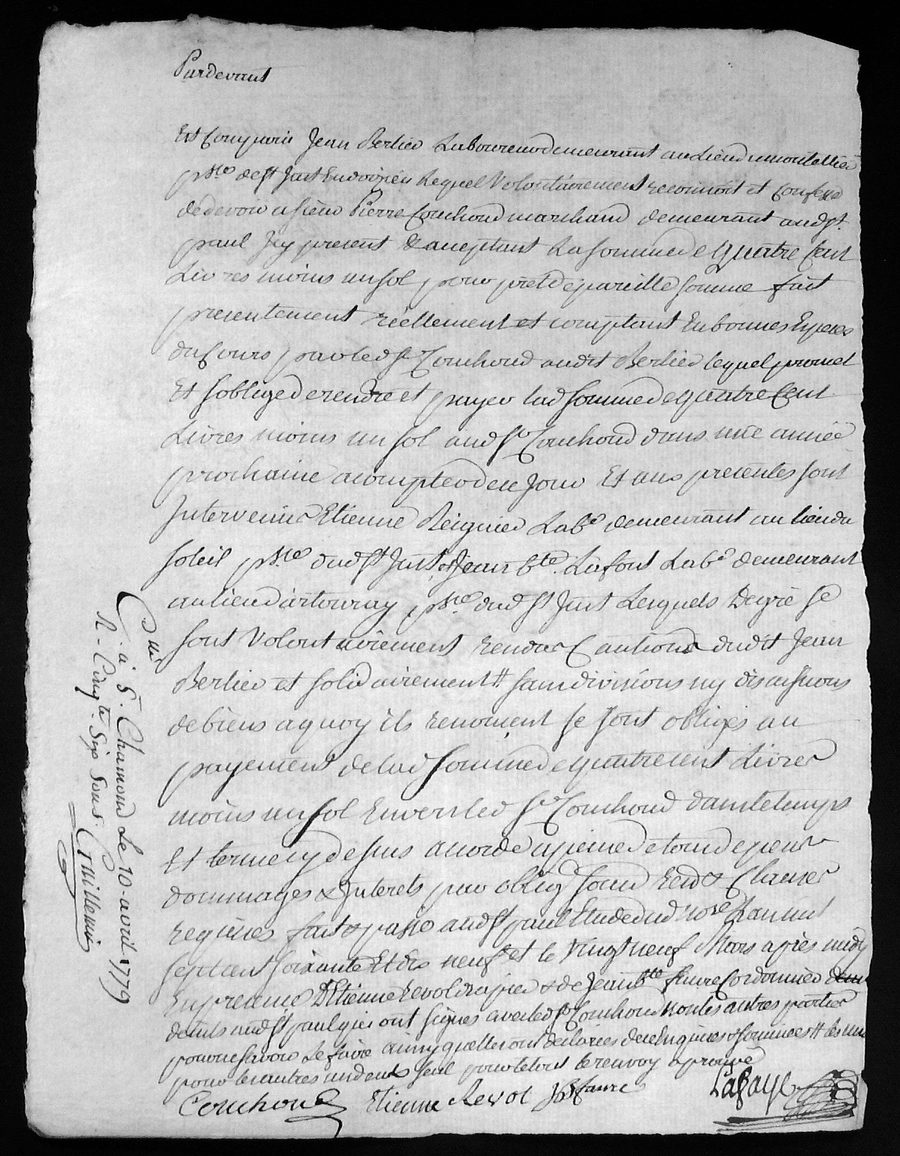 Pardevant
Est Comparu Jean Berlier Laboureur demeurant au lieu du montellier
psse de st Just En doizieu Lequel Volontairement reconnoit et Confesse
de devoir a sieur Pierre Couchoud marchand demeurant aud st
paul Icy present & aceptant La somme de quatre Cent
Livres moins un sol pour pret de pareille somme fait
presentement réellement et comptant En bonnes Especes
du Cours par led sr Couchoud audit Berlier lequel promet
Et soblige de rendre et payer lad somme de quatre Cent
Livres moins un sol aud sr Couchoud dans une année
prochaine a compter de ce Jour Et aux presentes sont
Intervenus Etienne Reignier Labr demeurant au lieu du
soleil psse dud st Just & Jean bte Lafont Labr demeurant
au lieu d'artouray psse dud st Just Lesquels De gré se
sont Volontairement rendus Cautions dudit Jean
Berlier et solidairement # sans divisions ny discussions
de biens a quoy ils renoncent se sont obligés au
payement de lad somme de quatre cent Livres
moins un sol Envers led sr Couchoud dans le temps
Et terme cy dessus accordé a peine de tous depens
dommages & Interets par oblig soum Renon & Clauses
requises fait & passé aud st paul Etude dud nore L'an mil
sept cent soixante Et dix neuf et le vingt neuf Mars après midy
En presence D'Etienne Revol drapier & de Jean bte faure Cordonnier
demts aud st paul qui ont signés avec led sr Couchoud Non les autres parties
pour ne savoir Le faire ainsy quelles ont déclarées de ce Enquises & sommées # les uns
pour les autres un deux seul pour le tout le renvoy aprouvé
Couchoud Etienne Revol JB faure Lafaye
Cllé à St. Chamond Le 10. avril 1779
R. Cinqte. Six Sous. Guillemin